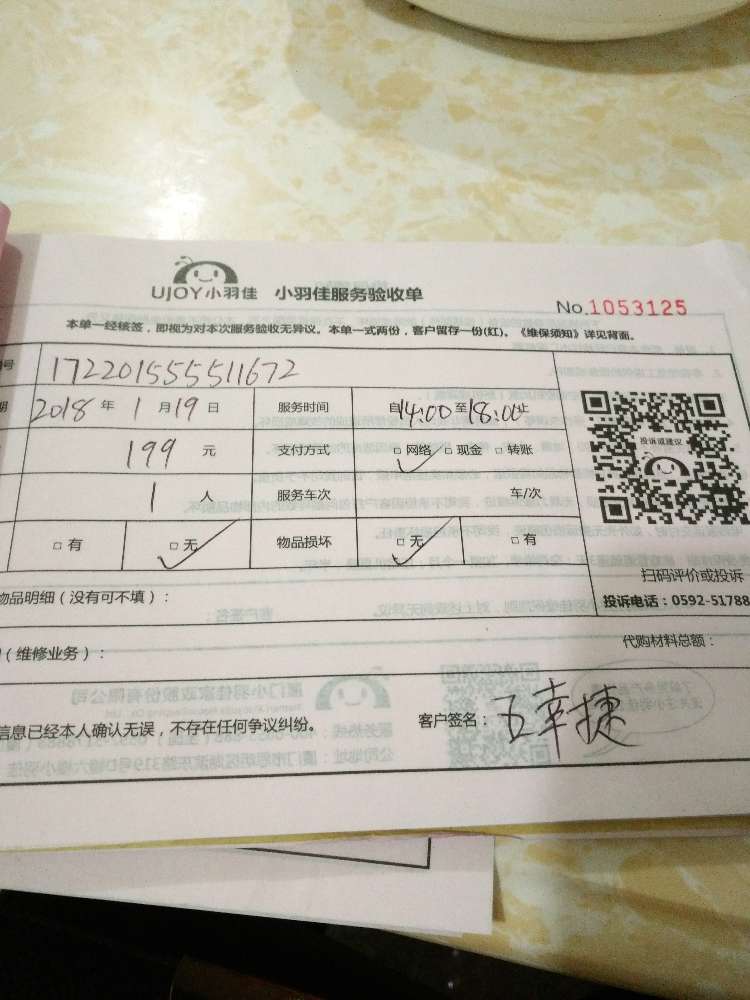 UJOY小羽佳 小羽佳服务验收单
No.1053125
本单一经核签，即视为对本次服务验收无异议。本单一式两份，客户留存一份(红)。《维保须知》详见背面。
号 172201555511672
期 2018年1月19日 服务时间 自14:00至18:00止
199元 支付方式 □网络 □现金 □转账
投诉或建议
1人 服务车次 车/次
□有 □无 物品损坏 □无 □有
扫码评价或投诉
物品明细（没有可不填）：
投诉电话：0592-51788
（维修业务）：
代购材料总额：
信息已经本人确认无误，不存在任何争议纠纷。 客户签名：